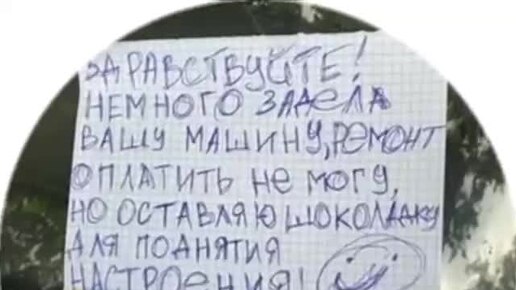 ЗДРАВСТВУЙТЕ!
НЕМНОГО ЗАДЕЛА
ВАШУ МАШИНУ, РЕМОНТ
ОПЛАТИТЬ НЕ МОГУ,
НО ОСТАВЛЯЮ ШОКОЛАДКУ
ДЛЯ ПОДНЯТИЯ
НАСТРОЕНИЯ!